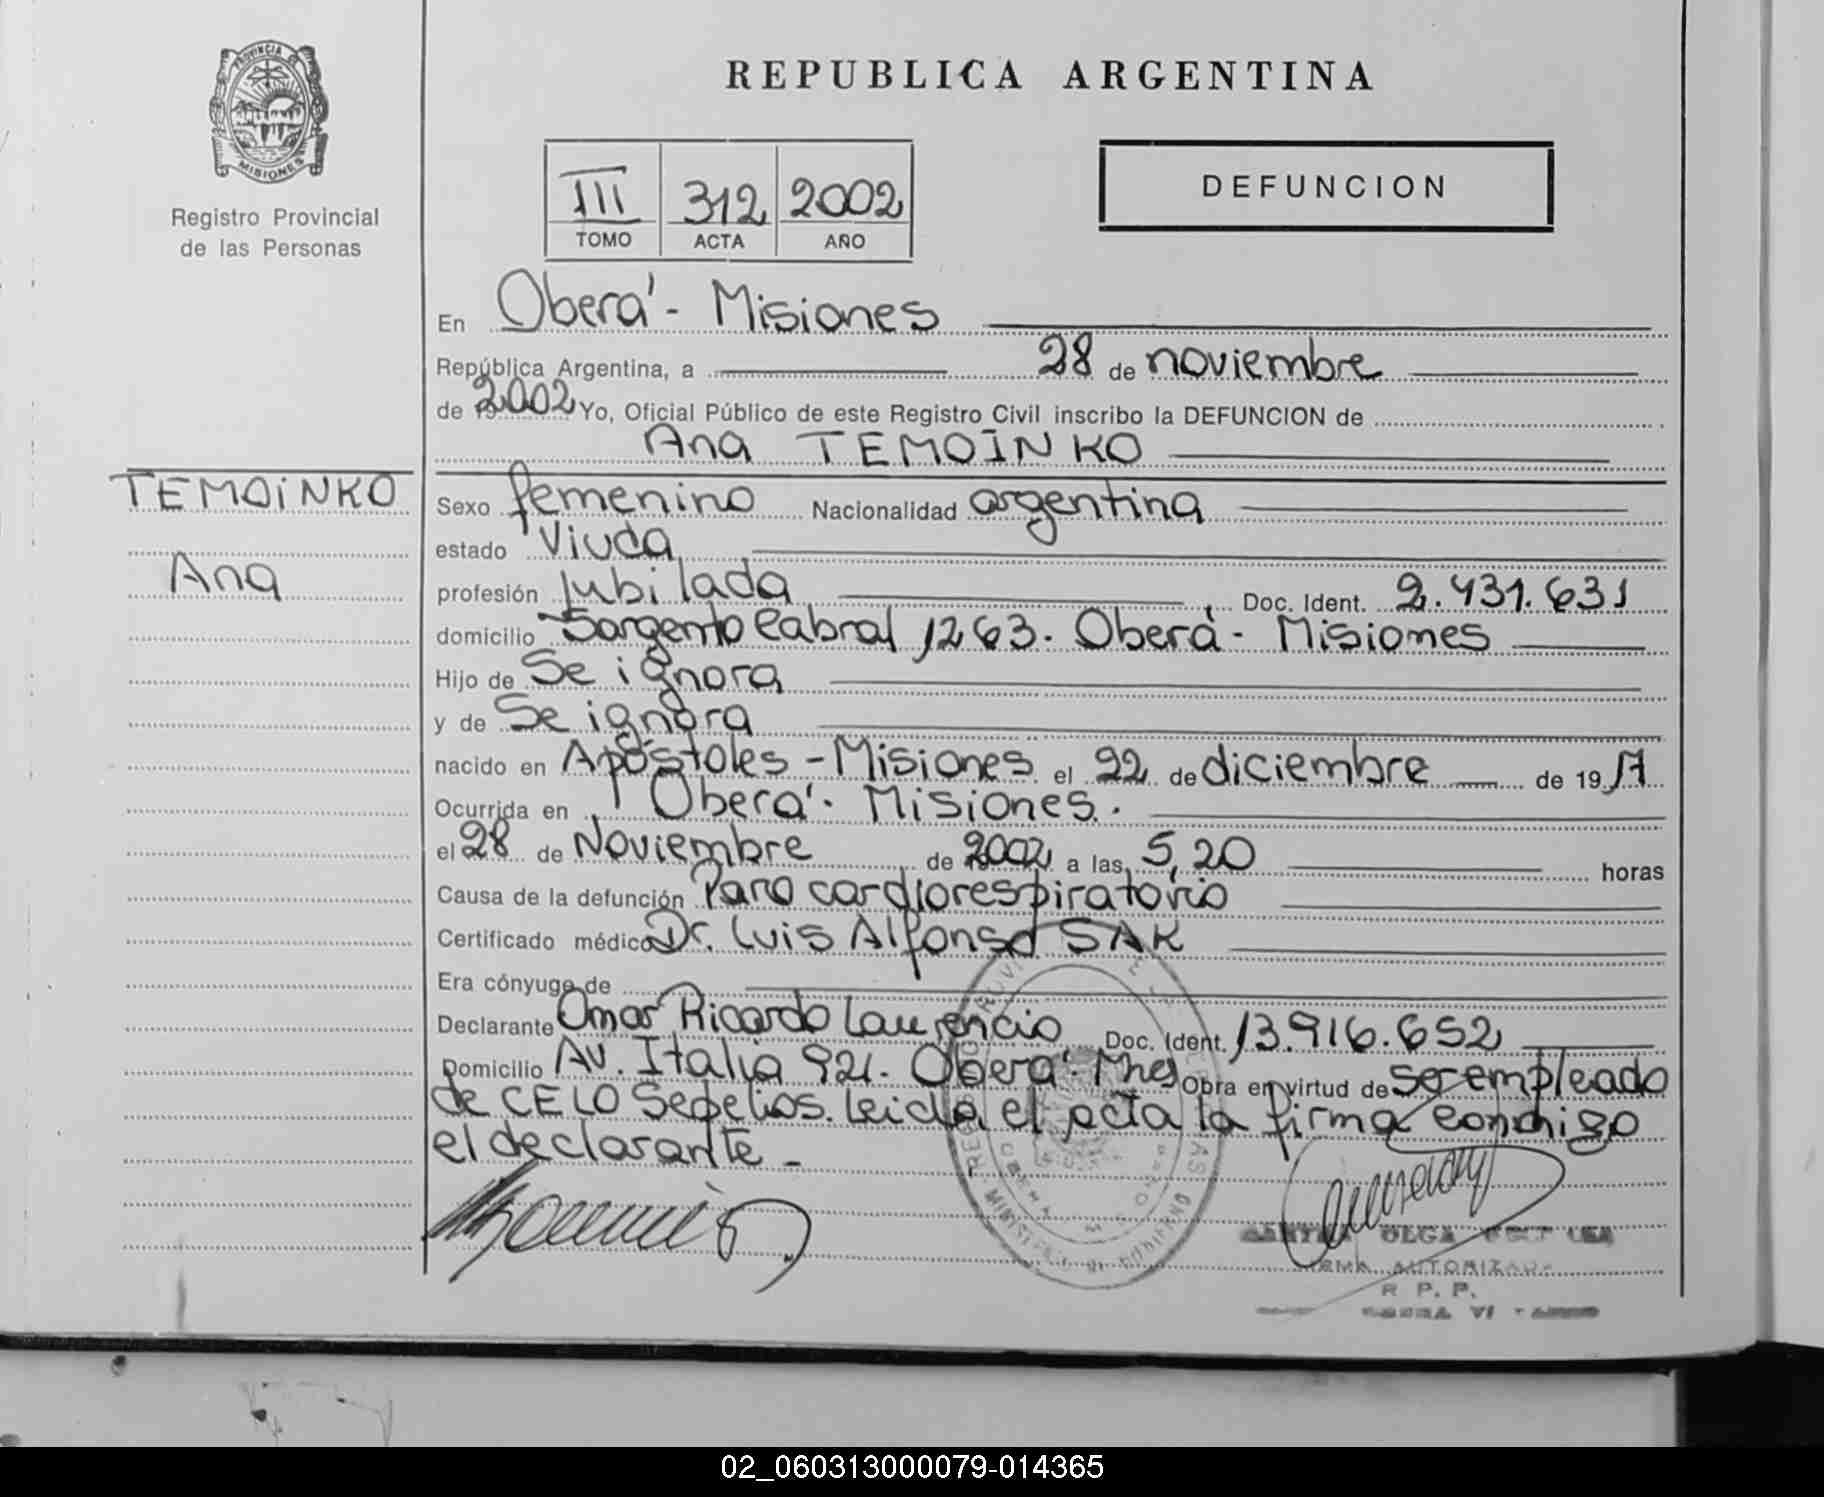 PROVINCIA DE
MISIONES
Registro Provincial
de las Personas
REPUBLICA ARGENTINA
III 312 2002
TOMO ACTA AÑO
DEFUNCION
En Oberá - Misiones
República Argentina, a 28 de noviembre
de 2002 Yo, Oficial Público de este Registro Civil inscribo la DEFUNCION de
Ana TEMOINKO
TEMOINKO
Ana
Sexo femenino Nacionalidad argentina
estado Viuda
profesión Jubilada Doc. Ident. 2.431.631
domicilio Sargento Cabral 1263. Oberá - Misiones
Hijo de Se ignora
y de Se ignora
nacido en Apóstoles - Misiones el 22 de diciembre de 1917
Ocurrida en Oberá. Misiones.
el 28 de Noviembre de 2002 a las 5,20 horas
Causa de la defunción Paro cardiorespiratorio
Certificado médico Dr. Luis Alfonso SAK
Era cónyuge de
Declarante Omar Ricardo Laurencio Doc. Ident. 13.916.652
Domicilio Av. Italia 921. Oberá. Mnes Obra en virtud de ser empleado
de CELO Sepelios. Leída el acta la firma conmigo
el declarante -
OLGA
AUTORIZADA
R. P. P.
02_060313000079-014365